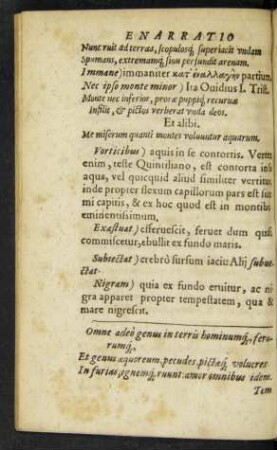 ENARRATIO
Nunc ruit ad terras, scopulosq; superiacit vndam
Spumans, extremamq; sinu perfundit arenam.
Immane) immaniter κατ' ἐναλλαγὴν partium.
Nec ipso monte minor) Ita Ouidius I. Trist.
Monte nec inferior, proræ puppiq; recuruæ
Insilit, & pictos verberat vnda deos.
Et alibi.
Me miserum quanti montes voluuntur aquarum.
Vorticibus) aquis in se contortis. Vortex
enim, teste Quintiliano, est contorta in se
aqua, vel quicquid aliud similiter vertitur
inde propter flexum capillorum pars est sum
mi capitis, & ex hoc quod est in montibus
eminentissimum.
Exæstuat) efferuescit, feruet dum quasi
commiscetur, ebullit ex fundo maris.
Subiectat) crebrò sursum iacit: Alij subue-
ctat.
Nigram) quia ex fundo eruitur, ac ni
gra apparet propter tempestatem, qua &
mare nigrescit.
Omne adeò genus in terris hominumq; fera-
rumq;
Et genus æquoreum, pecudes, pictæq; volucres
In furias, ignemq; ruunt: amor omnibus idem.
Tem